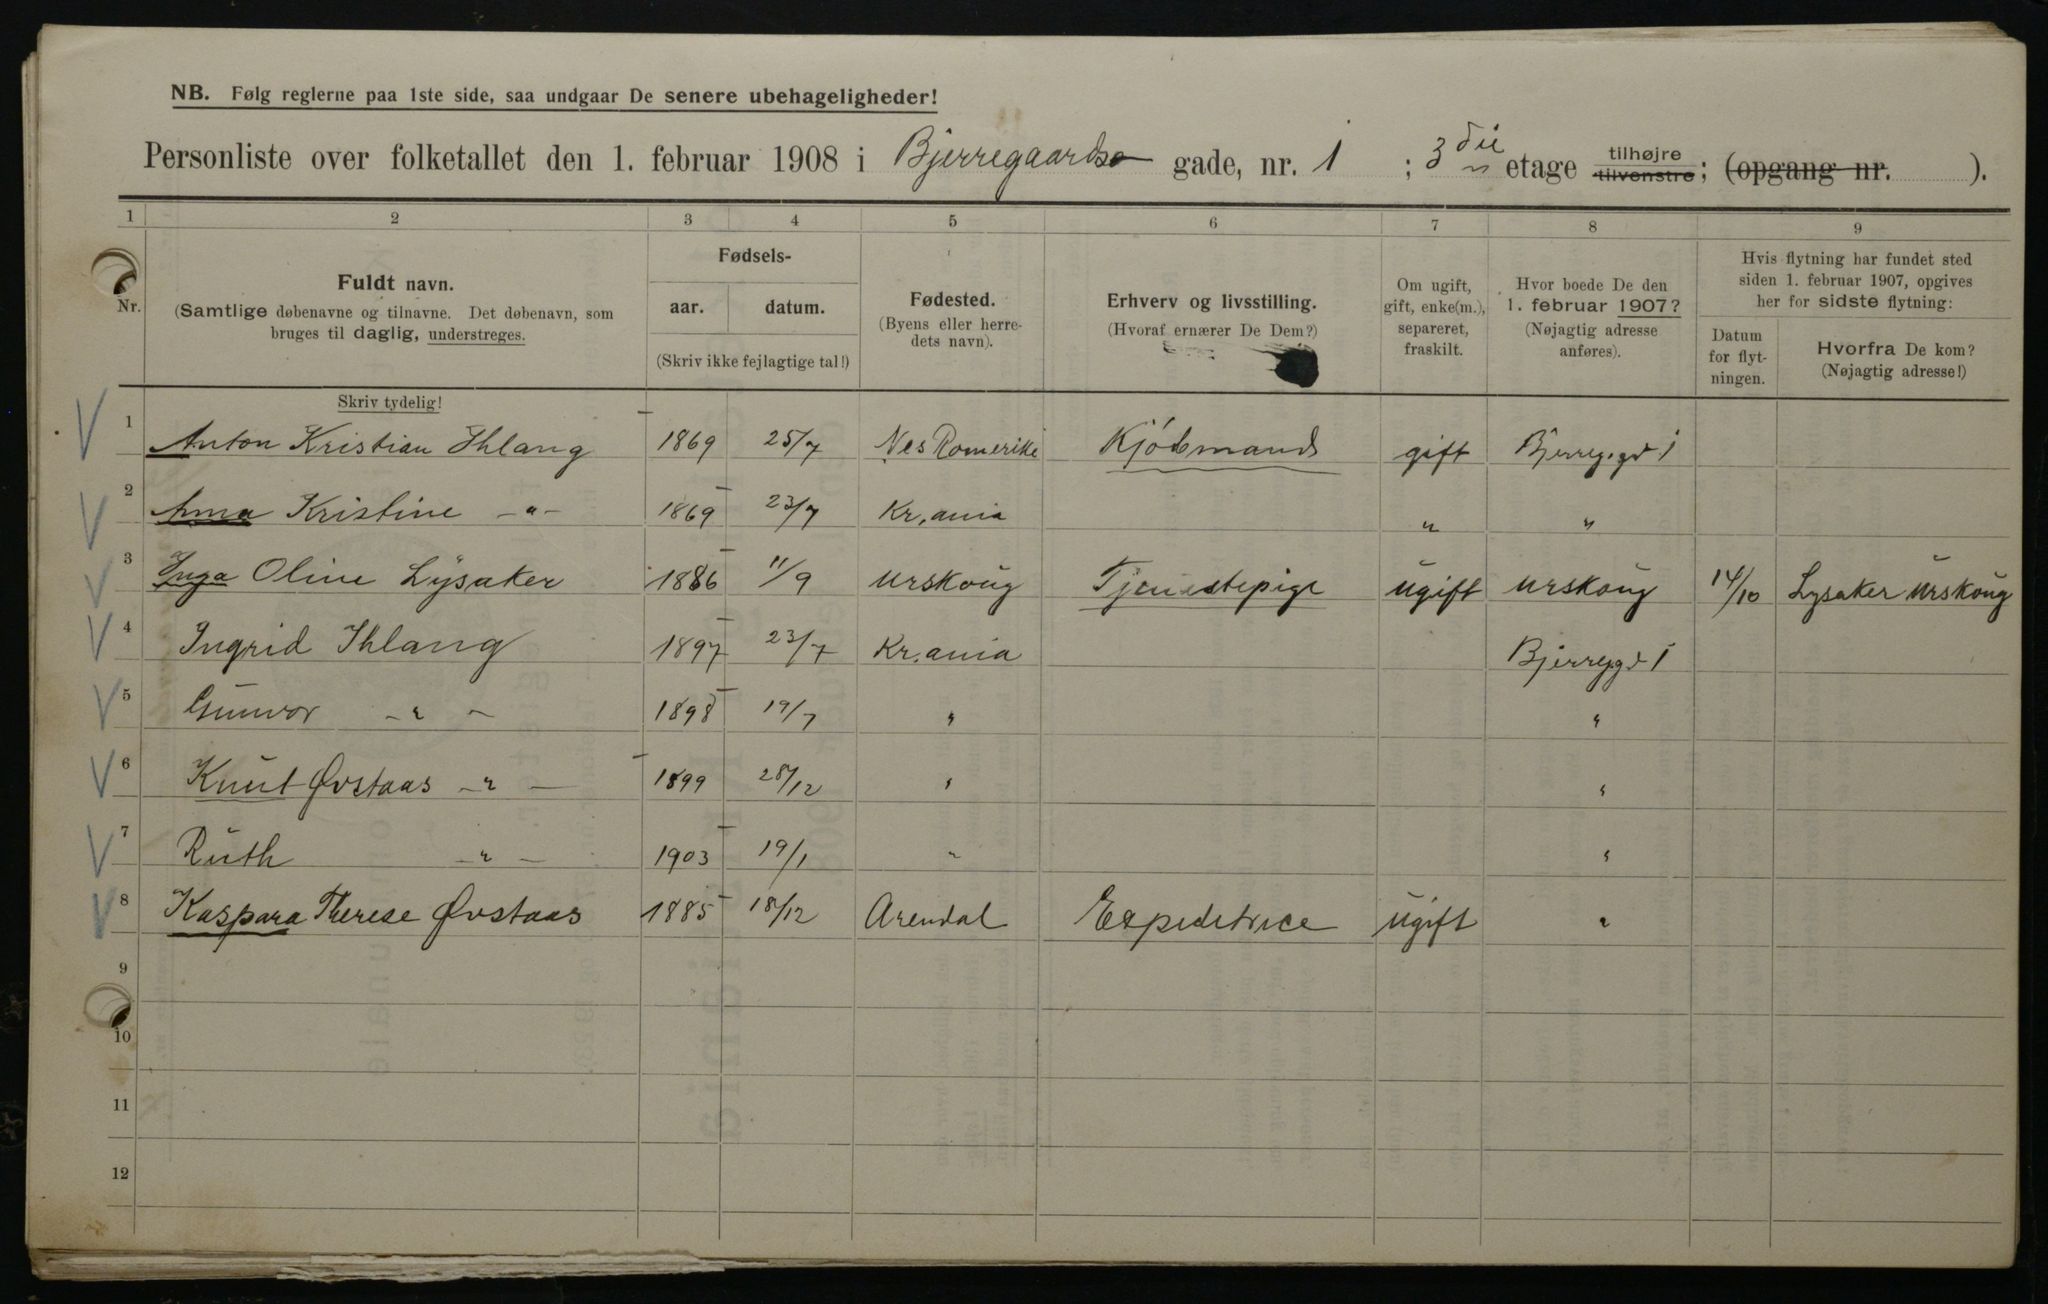 NB. Følg reglerne paa 1ste side, saa undgaar De senere ubehageligheder!
Personliste over folketallet den 1. februar 1908 i Bjerregaards gade, nr. 1 ; 3die etage tilhøjre tilvenstre; (opgang nr. ).
1 2 3 4 5 6 7 8 9
Nr. Fuldt navn. (Samtlige døbenavne og tilnavne. Det døbenavn, som bruges til daglig, understreges. Skriv tydelig!
Fødsels- aar. datum. (Skriv ikke fejlagtige tal!)
Fødested. (Byens eller herredets navn).
Erhverv og livsstilling. (Hvoraf ernærer De Dem?)
Om ugift, gift, enke(m.), separeret, fraskilt.
Hvor boede De den 1. februar 1907? (Nøjagtig adresse anføres).
Hvis flytning har fundet sted siden 1. februar 1907, opgives her for sidste flytning:
Datum for flytningen. Hvorfra De kom? (Nøjagtig adresse!)
1 Anton Kristian Ihlang 1869 25/7 Nes Romerike Kjöbmand gift Bjerreg.gd 1
2 Anna Kristine -"- 1869 23/7 Kr.ania " "
3 Inga Oline Lysaker 1886 11/9 Urskoug Tjenestepige ugift Urskoug 14/10 Lysaker Urskoug
4 Ingrid Ihlang 1897 23/7 Kr.ania Bjerreg.gd 1
5 Gunvor -"- 1898 19/7 " "
6 Knut Øvstaas -"- 1899 28/12 " "
7 Ruth -"- 1903 19/1 " "
8 Kaspara Therese Øvstaas 1885 18/12 Arendal Expeditrice ugift "
9
10
11
12